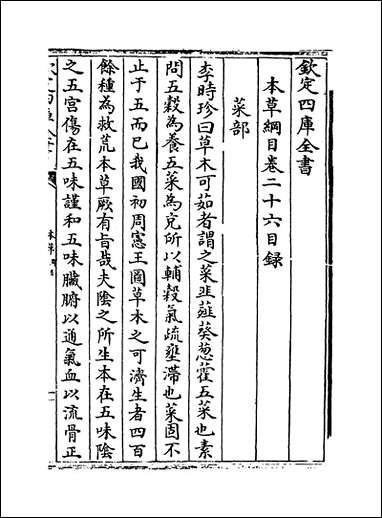 欽定四庫全書
本草綱目卷二十六目録
菜部
李時珍曰草木可茹者謂之菜韭薤葵葱藿五菜也素
問五穀為養五菜為充所以輔穀氣疏壅滯也菜固不
止于五而已我國初周憲王圖草木之可濟生者四百
餘種為救荒本草厥有旨哉夫陰之所生本在五味陰
之五宫傷在五味謹和五味臓腑以通氣血以流骨正